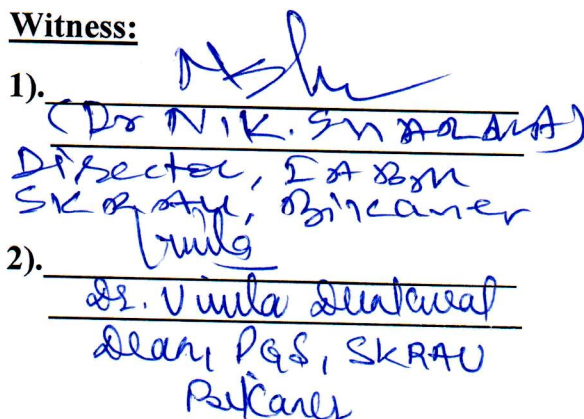 Witness:
1).
(Dr N.K. SHARMA)
Director, IABM
SKRAU, Bikaner
Vimla
2).
Dr. Vimla Dunkwal
Dean, PGS, SKRAU
Bikaner